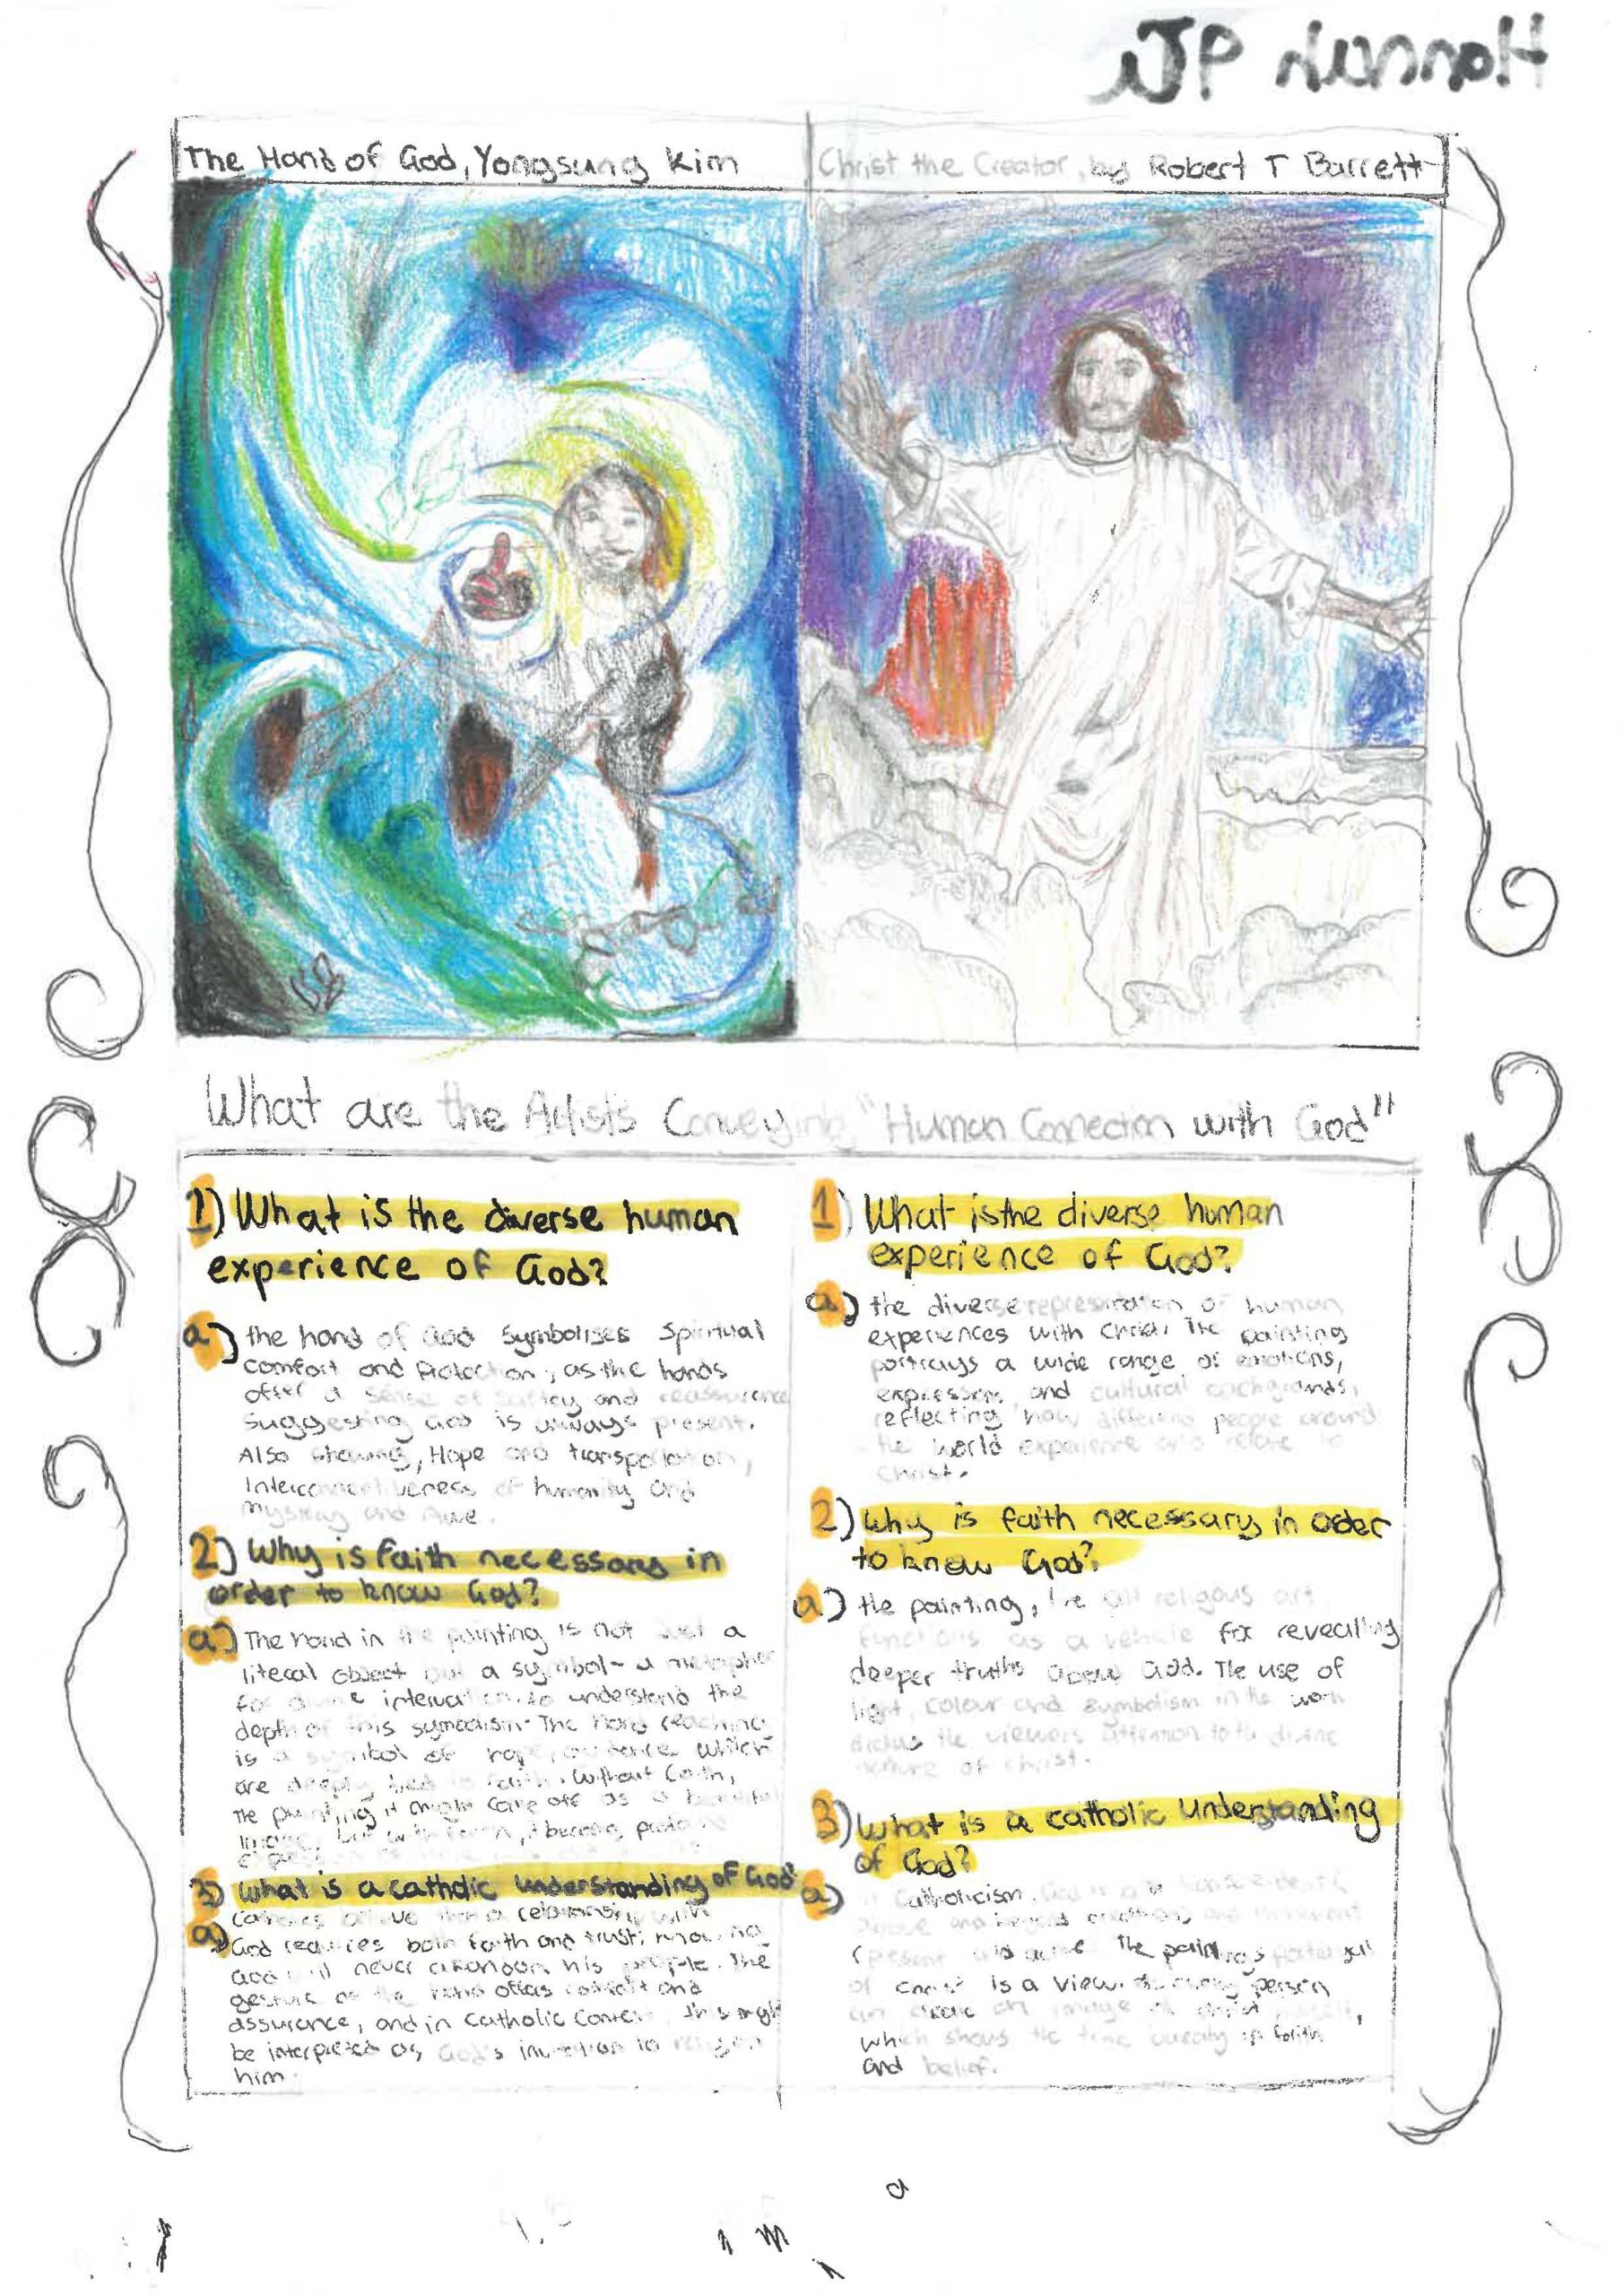 JP
The Hand of God, Yongsung Kim
Christ the Creator, by Robert T Barrett
What are the Artists Conveying "Human Connection with God"
1) What is the diverse human
experience of God?
a) the hand of God Symbolises Spiritual
comfort and Protection, as the hands
offer a sense of and reassurance
suggesting God is always present.
Also showing, Hope and
Interconnectiveness of humanity and
mystery and Awe.
2) Why is faith necessary in
order to know God?
a) The hand in the painting is not just a
literal object but a symbol - a metaphor
for to understand the
depth of this symbolism. The hand reaching
is a symbol of which
are deeply tied to faith. Without faith,
The painting it might come off as a beautiful
image, but with faith, it
3) What is a catholic understanding of God?
a) Catholics believe that a relationship with
God requires both faith and trust, knowing
God will never abandon his people. The
gesture of the hand offers comfort and
assurance, and in Catholic this might
be interpreted as God's invitation to
him.
1) What is the diverse human
experience of God?
a) the diverse representation of human
experiences with Christ. The painting
portrays a wide range of emotions,
expressions and cultural backgrounds,
reflecting how people around
the world experience and relate to
Christ.
2) Why is faith necessary in oder
to know God?
a) the painting, like all religous art
functions as a vehicle for revealing
deeper truths about God. The use of
light, colour and symbolism in the work
the viewers attention to the divine
nature of Christ.
3) What is a catholic understanding
of God?
a) Catholicism,
above and beyond
(present The
of Christ is a view. person
can create an image of
which shows the in faith
and belief.